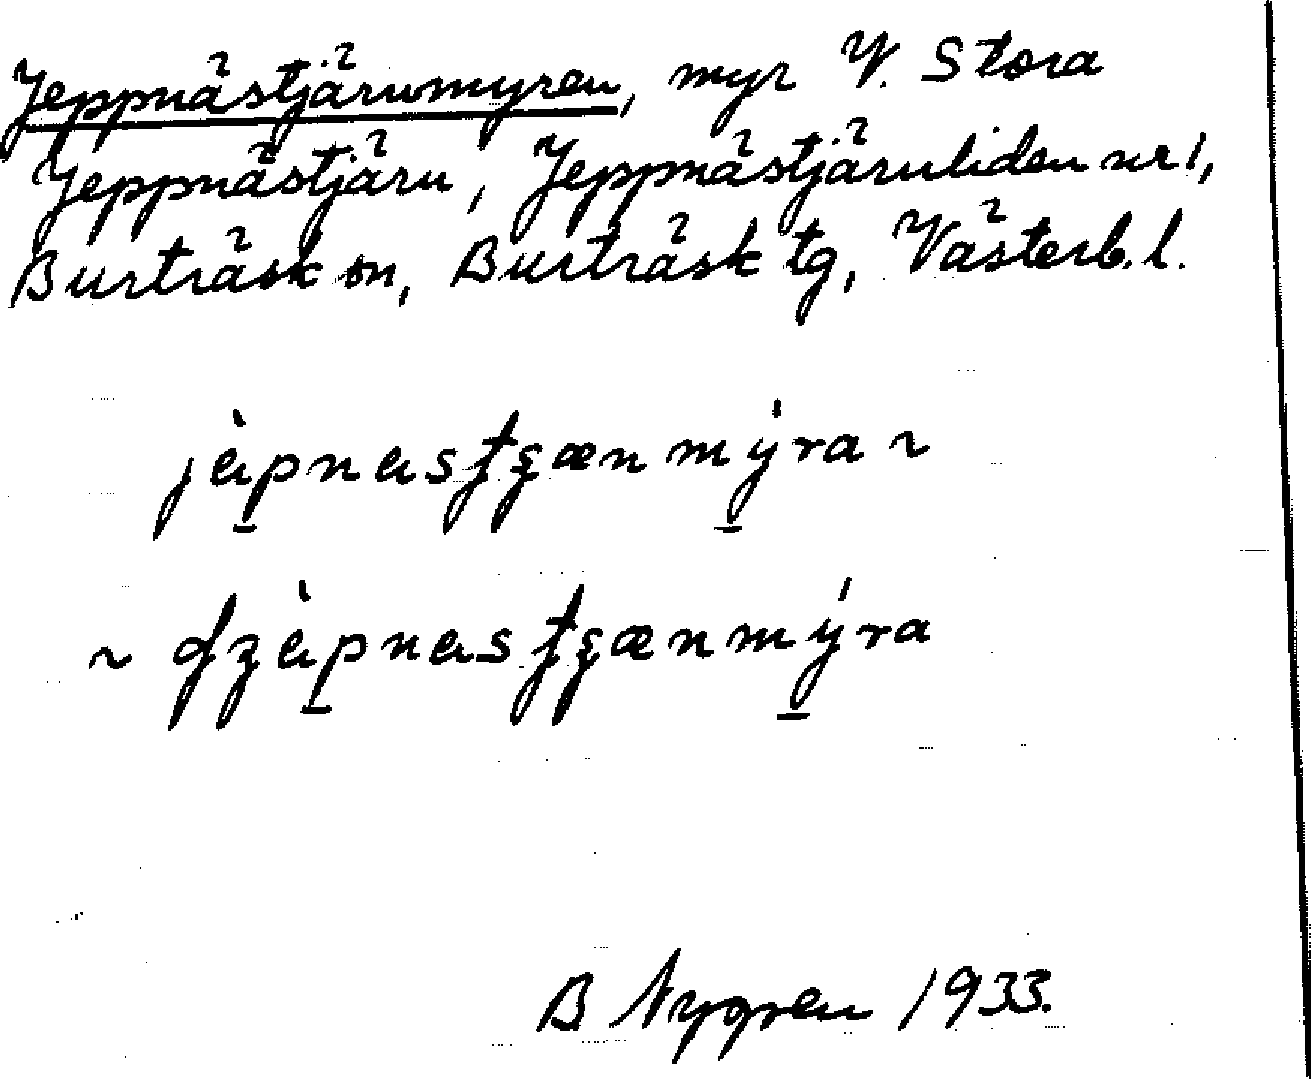 Jeppnästjärnmyren, myr V. Stora
Jeppnästjärn, Jeppnästjärnliden nr 1,
Burträsk sn, Burträsk tg, Västerb. l.
jèpnastʂænmýra ~
~ dʐèpnastʂænmýra
B Nygren 1933.